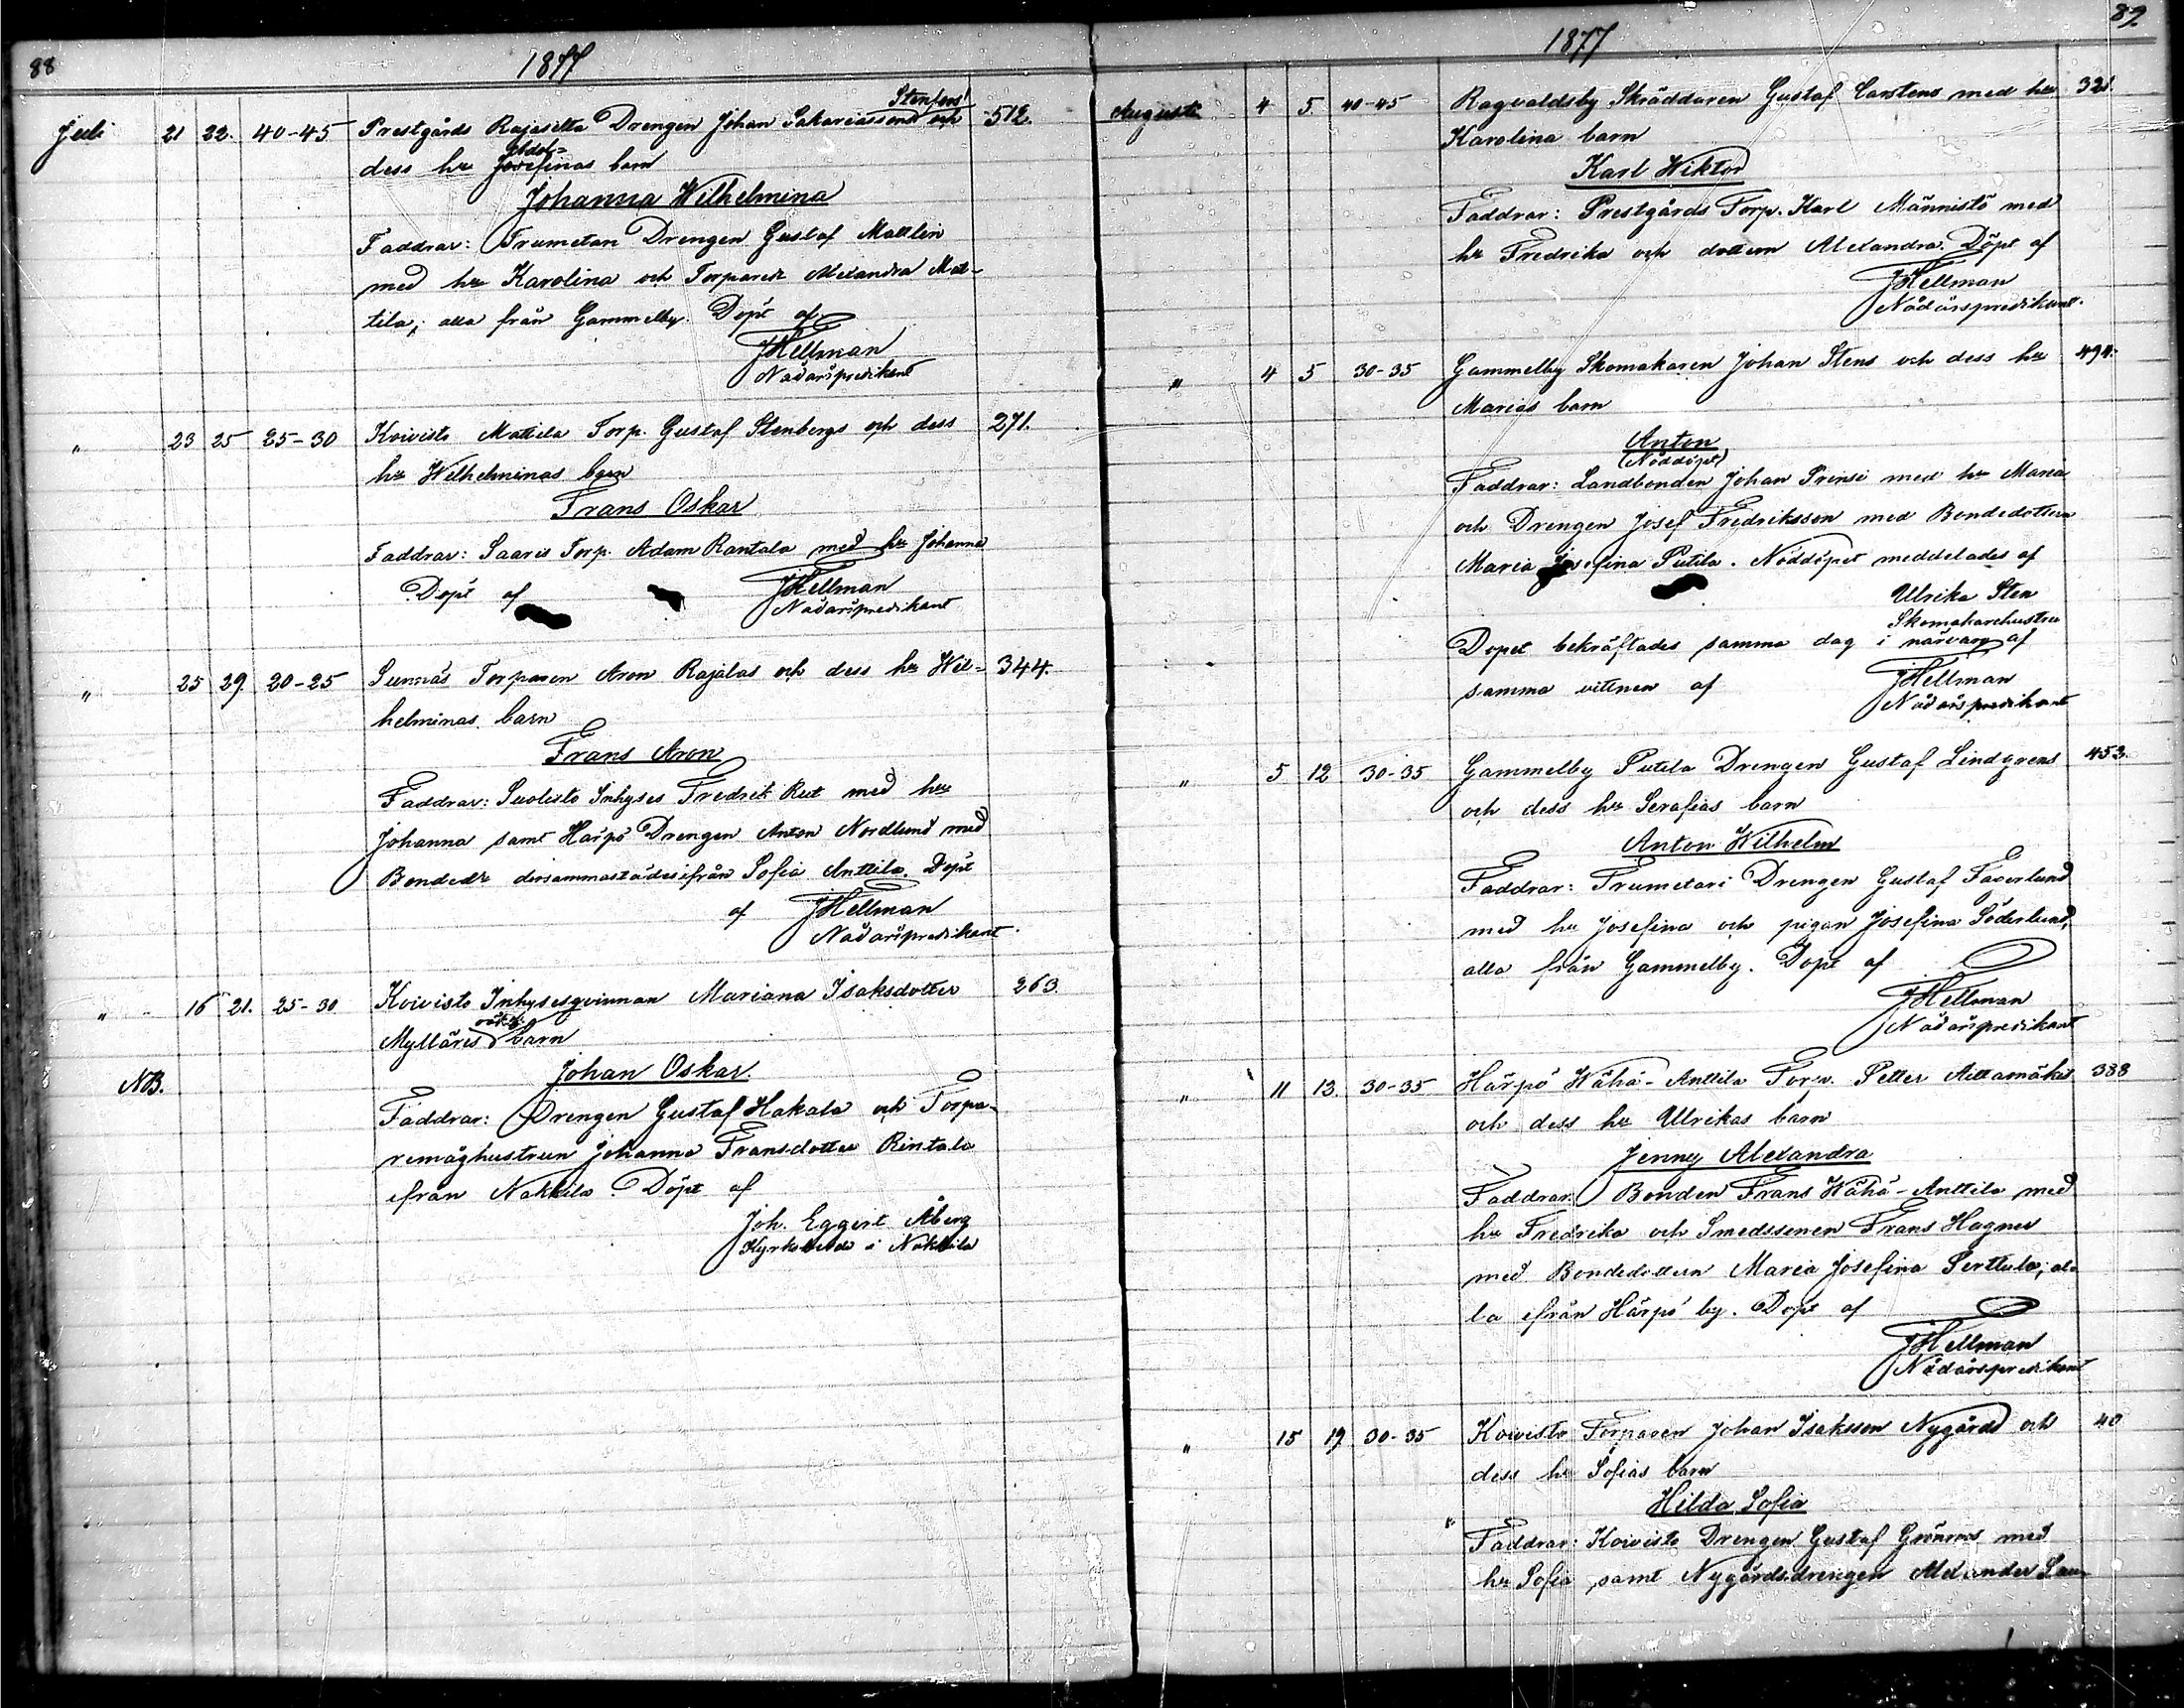 88
1877
Juli 21 22. 40-45 Prestgårds Rajasilta Drengen Johan Sakariassons Stenfors och 512.
dess hu Adolfinas barn
Johanna Wilhelmina
Faddrar: Trumetari Drengen Gustaf Mattlin
med hu Karolina och Torparedr Alexandra Mat-
tila; alla från Gammelby. Döpt af
JHellman
Nådårspredikant
" 23 25 25-30 Koivisto Mattila Torp. Gustaf Stenbergs och dess 271.
hu Wilhelminas barn
Frans Oskar
Faddrar: Saaris Torp. Adam Rantala med hu Johanna
Döpt af JHellman
Nådårspredikant
" 25 29. 20-25 Sunnäs Torparen Aron Rajalas och dess hu Wil- 344.
helminas barn
Frans Aron
Faddrar: Suolisto Inhyses Fredrik Rut med hu
Johanna samt Harpö Drengen Anton Nordlund med
Bondedr dersammastädesifrån Sofia Anttila. Döpt
af JHellman
Nådårspredikant.
" 16 21. 25-30 Koivisto Inhysesqvinnan Mariana Isaksdotter 263.
Mylläris oäkta barn
Johan Oskar
NB.
Faddrar: Drengen Gustaf Hakala och Torpa-
remåghustrun Johanna Fransdotter Rintala
ifrån Nakkila. Döpt af
Joh. Eggert Åberg
Kyrkoherde i Nakkila
89
1877
Augusti 4 5. 40-45 Ragvaldsby Skräddaren Gustaf Carstens med hu 321.
Karolina barn
Karl Wiktor
Faddrar: Prestgårds Torp. Karl Männistö med
hu Fredrika och dottern Alexandra. Döpt af
JHellman
Nådårspredikant.
" 4 5 30-35 Gammelby Skomakaren Johan Stens och dess hu 494.
Marias barn
Anton
(Nöddöpt)
Faddrar: Landbonden Johan Prinsi med hu Maria
och Drengen Josef Fredriksson med Bondedottern
Maria Josefina Putila. Nöddopet meddelades af
Ulrika Sten
Skomakarehustru
Dopet bekräftades samma dag i närvaro af
samma vittnen af JHellman
Nådårspredikant
" 5 12 30-35 Gammelby Putila Drengen Gustaf Lindgrens 453.
och dess hu Serafias barn
Anton Wilhelm
Faddrar: Trumetari Drengen Gustaf Fagerlund
med hu Josefina och pigan Josefina Söderlund,
alla från Gammelby. Döpt af
JHellman
Nådårspredikant
" 11 13. 30-35 Härpö Wähä-Anttila Torp. Petter Aittamäkis 388
och dess hu Ulrikas barn
Jenny Alexandra
Faddrar. Bonden Frans Wähä-Anttila med
hu Fredrika och Smedssonen Frans Hagner
med Bondedottern Maria Josefina Serttula; al-
la ifrån Härpö by. Döpt af
JHellman
Nådårspredikant
" 15 19 30-35 Koivisto Torparen Johan Isaksson Nygårds och 40
dess hu Sofias barn
Hilda Sofia
Faddrar: Koivisto Drengen Gustaf Grönroos med
hu Sofia samt Nygårdsdrengen Alexander